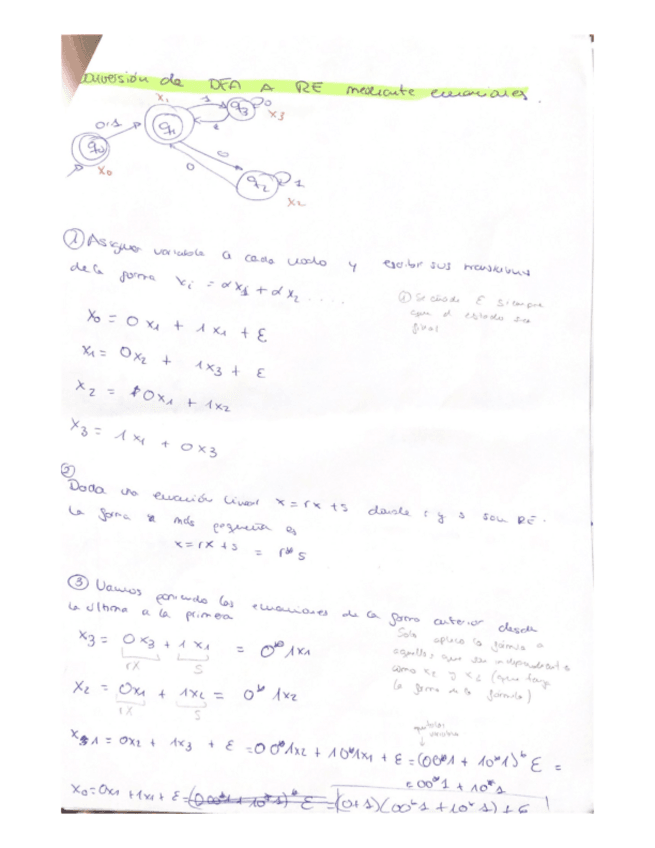 conversión de DFA A RE mediante ecuaciones.
x1
1
q3
0
x3
0,1
q1
q0
x0
0
0
q2
1
x2
① Asignar variable a cada nodo y escribir sus transiciones
de la forma xi = αx1 + αx2 ....
① Se añade ε siempre
que el estado sea
final
x0 = 0x1 + 1x1 + ε
x1 = 0x2 + 1x3 + ε
x2 = 0x1 + 1x2
x3 = 1x1 + 0x3
②
Dada una ecuación lineal x = rx + s donde r y s son RE.
la forma más pequeña es
x = rx + s = r*s
③ Vamos poniendo las ecuaciones de la forma anterior desde
la última a la primera
x3 = 0x3 + 1x1 = 0*1x1
rx s
Solo aplico la fórmula a
aquellos que
como x2 y x2 (que tenga
la forma de la fórmula)
x2 = 0x1 + 1x2 = 0*1x2
rx s
x1 = 0x2 + 1x3 + ε = 00*1x2 + 10*1x1 + ε = (00*1 + 10*1)*ε =
= 00*1 + 10*1
x0 = 0x1 + 1x1 + ε = (00*1 + 10*1)*ε = (0+1)(00*1 + 10*1) + ε